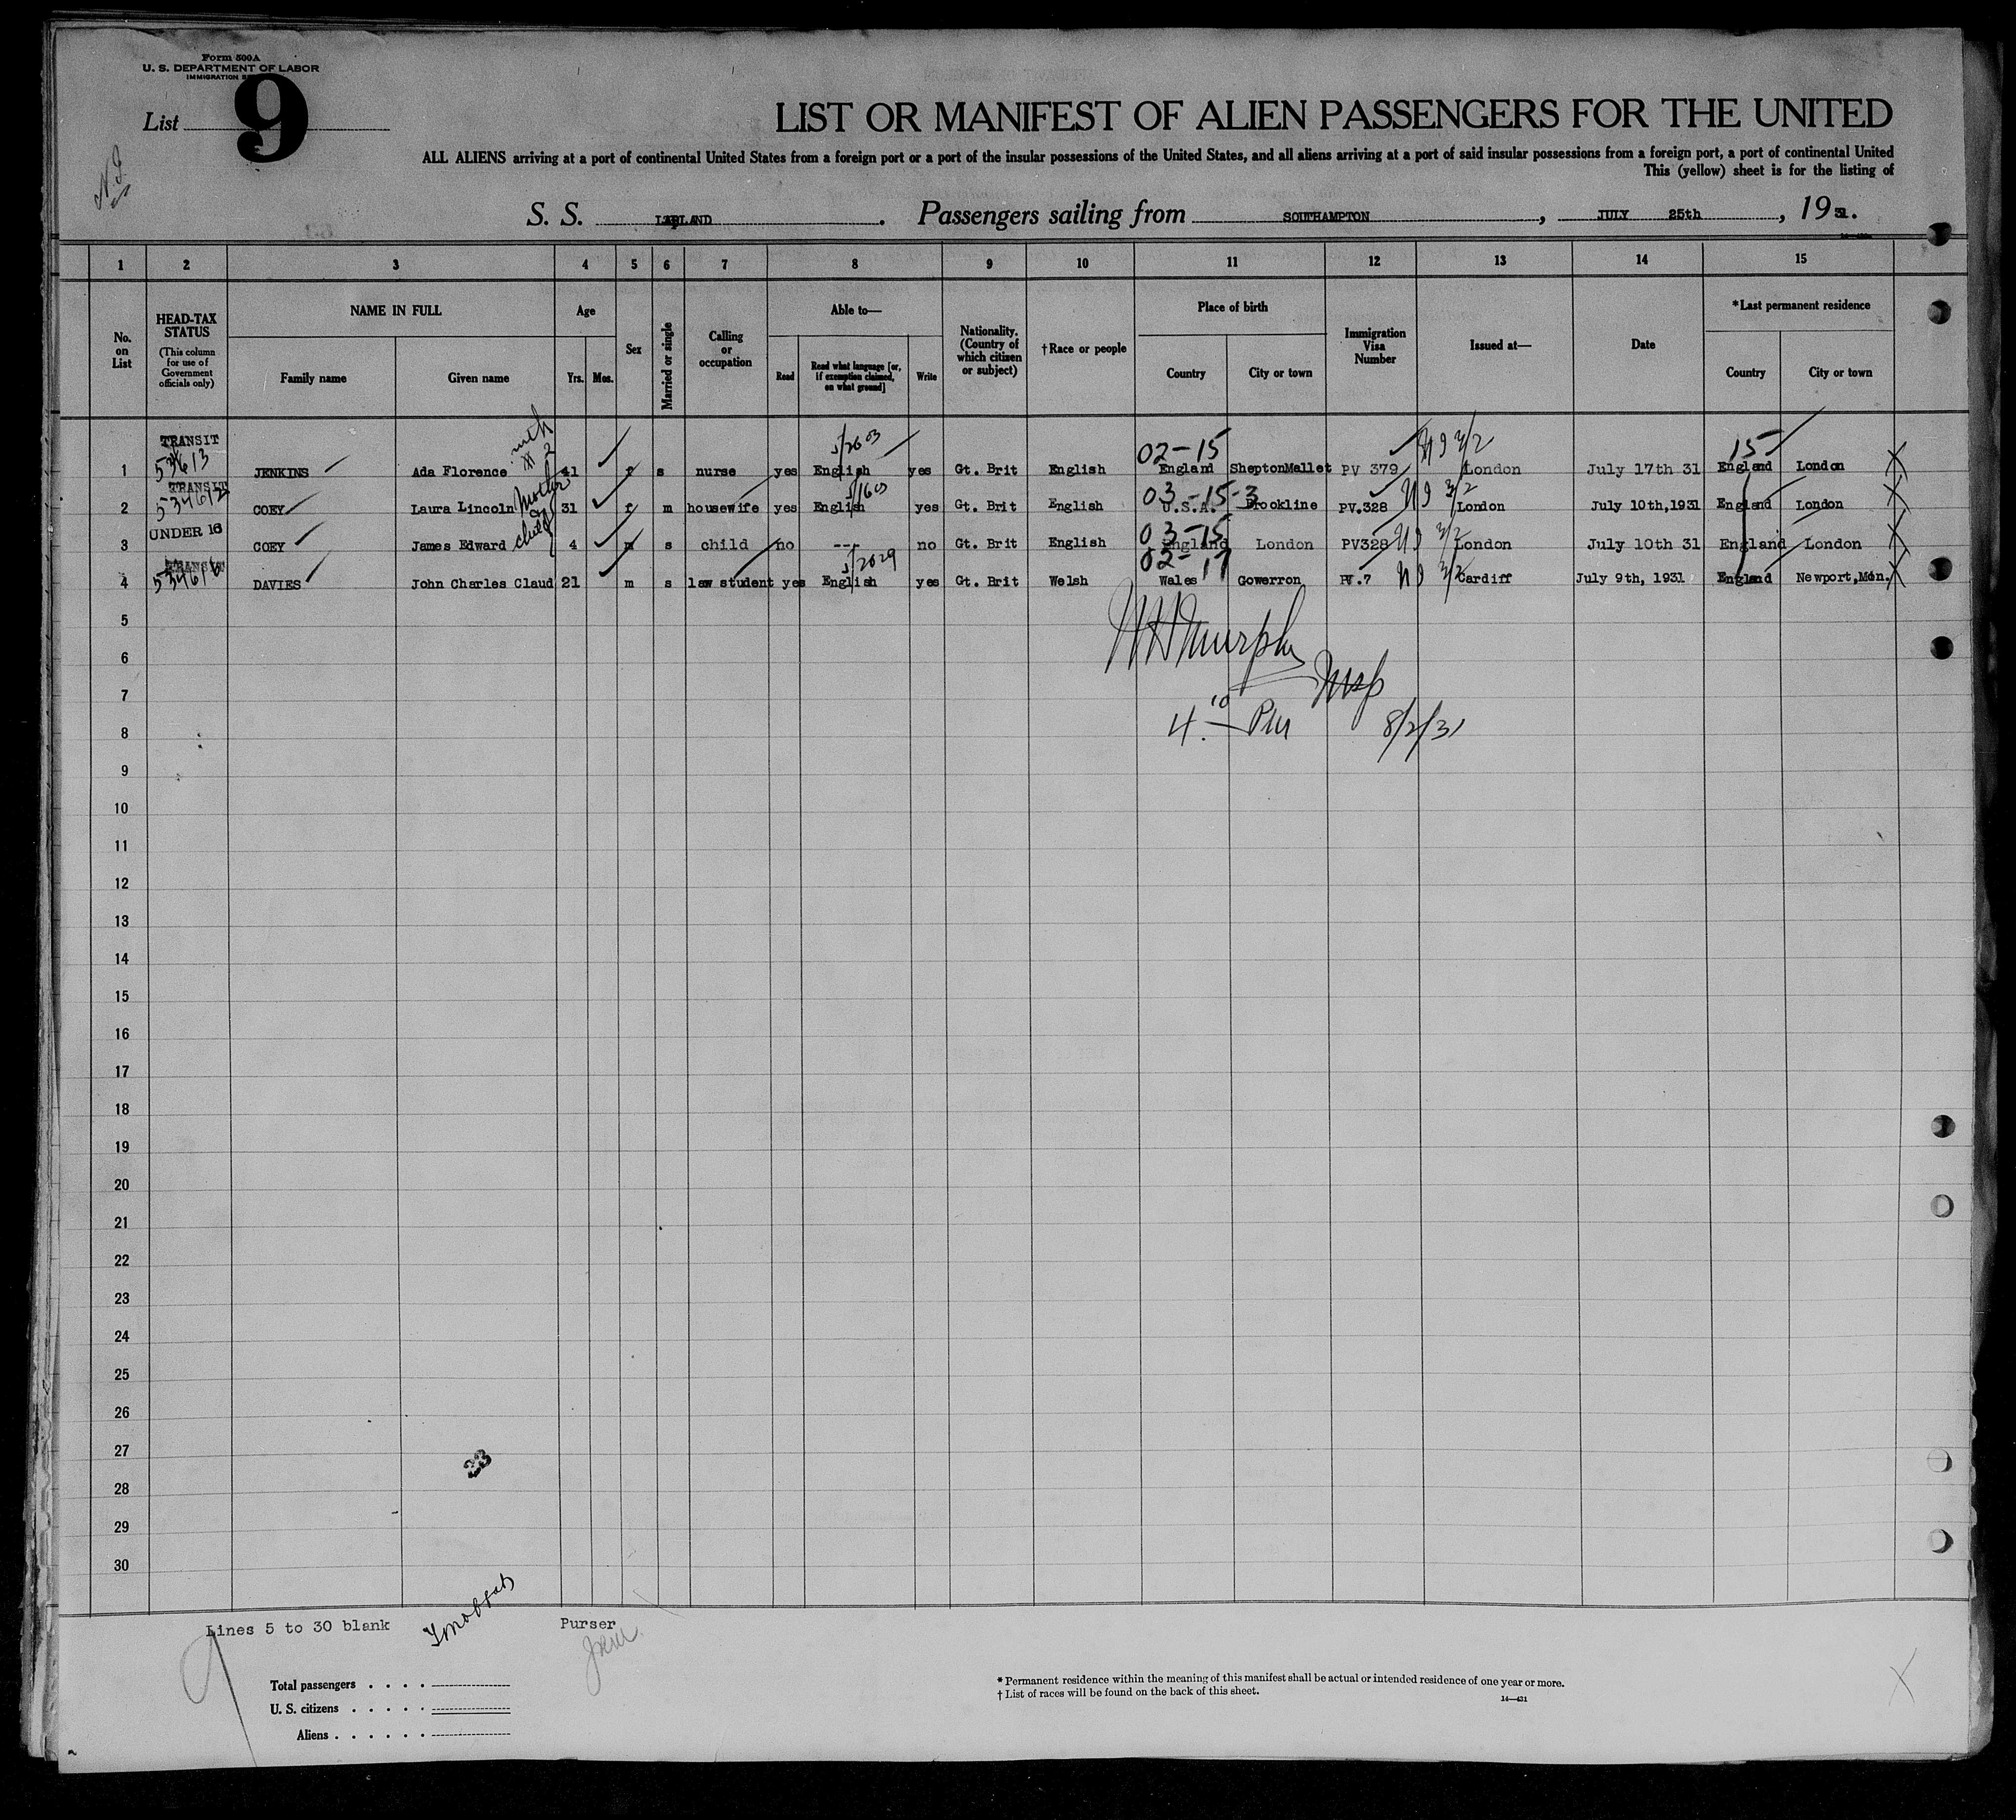 Form 500A
U. S. DEPARTMENT OF LABOR
IMMIGRATION
List 9
N.I.
LIST OR MANIFEST OF ALIEN PASSENGERS FOR THE UNITED
ALL ALIENS arriving at a port of continental United States from a foreign port or a port of the insular possessions of the United States, and all aliens arriving at a port of said insular possessions from a foreign port, a port of continental United
This (yellow) sheet is for the listing of
S. S. LAPLAND. Passengers sailing from SOUTHAMPTON, JULY 25th, 1931.
1 2 3 4 5 6 7 8 9 10 11 12 13 14 15
No. on List
HEAD-TAX STATUS
(This column for use of Government officials only)
NAME IN FULL
Family name Given name
Age
Yrs. Mos.
Sex
Married or single
Calling or occupation
Able to—
Read
Read what language [or, if exemption claimed, on what ground]
Write
Nationality. (Country of which citizen or subject)
†Race or people
Place of birth
Country City or town
Immigration Visa Number
Issued at—
Date
*Last permanent residence
Country City or town
TRANSIT 5/2603 02-15 NI 3/2 15
1 53613 JENKINS Ada Florence with #2 41 f s nurse yes English yes Gt. Brit English England SheptonMallet PV 379 London July 17th 31 England London
TRANSIT 5/1603 03-15-3 NI 3/2
2 534612 COEY Laura Lincoln Mother 31 f m housewife yes English yes Gt. Brit English U.S.A. Brookline PV.328 London July 10th,1931 England London
UNDER 16 03-15 NI 3/2
3 COEY James Edward child 4 m s child no --- no Gt. Brit English England London PV328 London July 10th 31 England London
TRANSIT 5/2029 02-17 NI 3/2
4 534616 DAVIES John Charles Claud 21 m s law student yes English yes Gt. Brit Welsh Wales Gowerron PV.7 Cardiff July 9th, 1931 England Newport,Mon.
5
6 Murphy
7 Insp
8 4.10 PM 8/2/31
9
10
11
12
13
14
15
16
17
18
19
20
21
22
23
24
25
26
27
28
29
30
33
Lines 5 to 30 blank Purser
Total passengers . . . .
U. S. citizens . . . . .
Aliens . . . . . .
* Permanent residence within the meaning of this manifest shall be actual or intended residence of one year or more.
† List of races will be found on the back of this sheet.
14—431